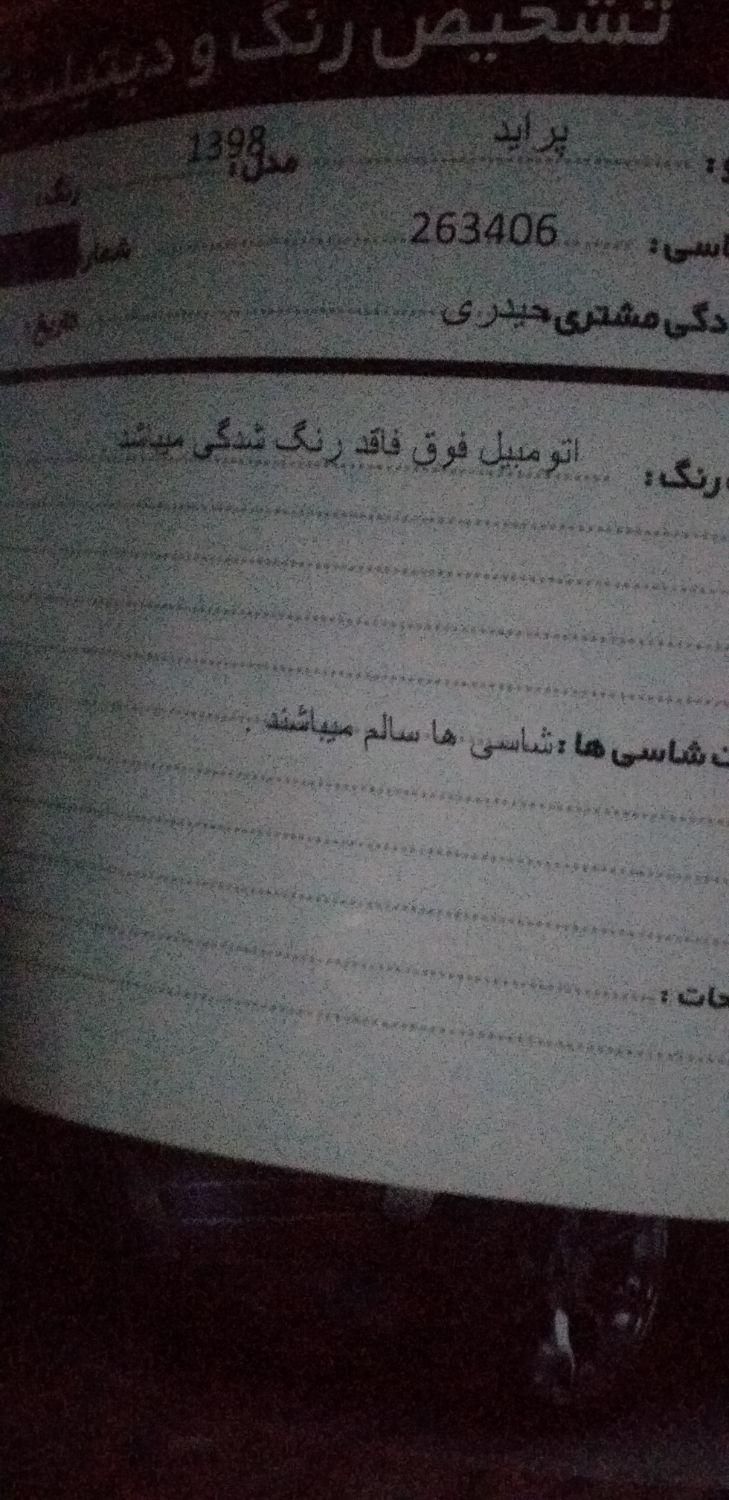 تشخیص رنگ و دیتیلینگ
پراید مدل: 1398 رنگ:
263406
مشتری حیدری تاریخ:
رنگ: اتومبیل فوق فاقد رنگ شدگی میباشد
شاسی ها: شاسی ها سالم میباشند .